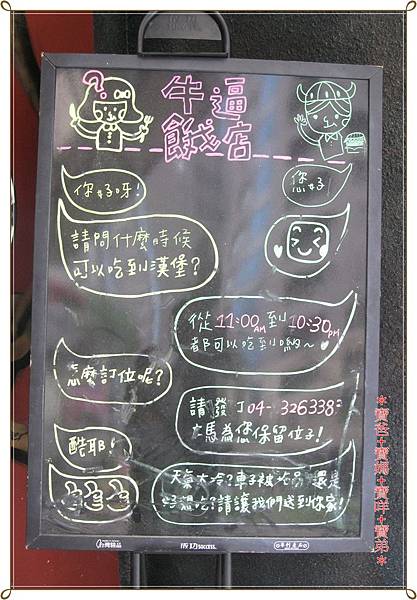 ?
牛逼
餓店
你好呀!
您好
請問什麼時候
可以吃到漢堡?
從11:00AM到10:30PM
都可以吃到喲~
怎麼訂位呢?
請發丁04-326338
馬為您保留位子!
酷耶!
天氣太冷?車子被 還是
請讓我們送到你家!
成功 success.
*寶爸+寶媽+寶咩+寶弟*